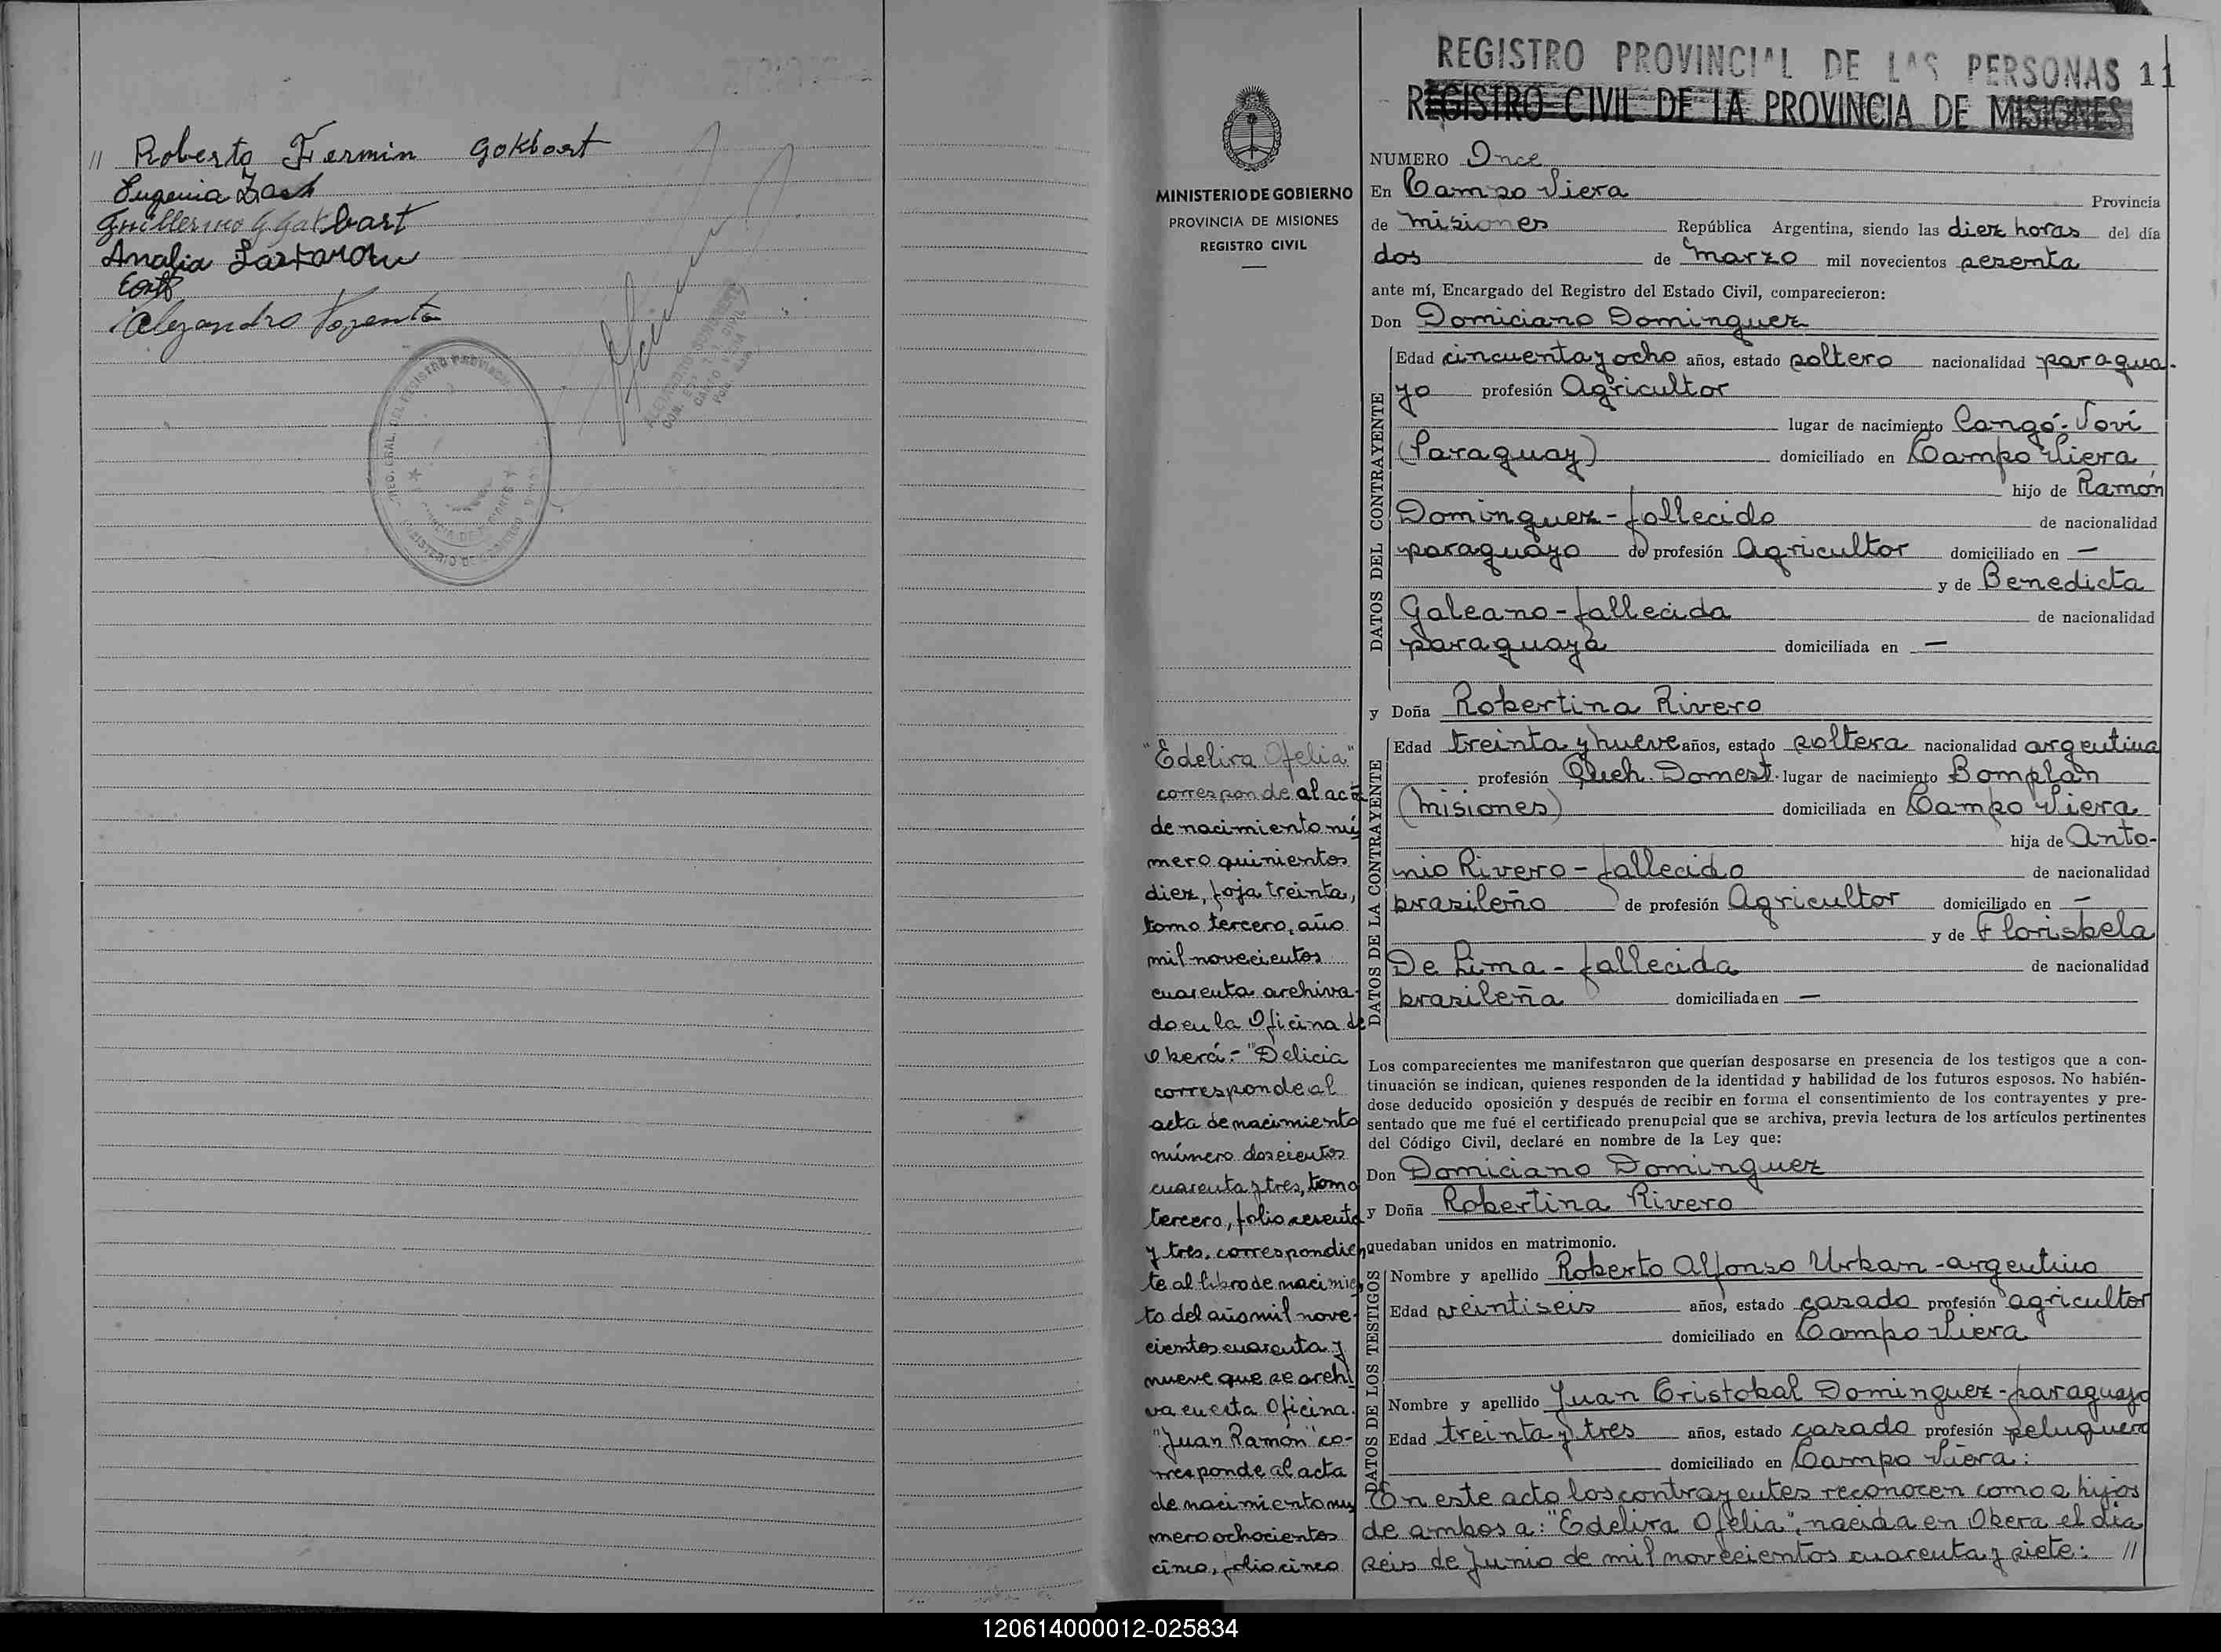 // Roberto Fermin Gokbart
Eugenia Zach
Guillermo G Gakbart
Analia
Alejandro
REGISTRO PROVINCIAL DE LAS PERSONAS 11
REGISTRO CIVIL DE LA PROVINCIA DE MISIONES
MINISTERIO DE GOBIERNO
PROVINCIA DE MISIONES
REGISTRO CIVIL
"Edelira Ofelia"
corresponde al acta
de nacimiento nú
mero quinientos
diez, foja treinta,
tomo tercero, año
mil novecientos
cuarenta archiva-
do en la Oficina de
Oberá.- "Delicia
corresponde al
acta de nacimiento
número doscientos
cuarenta y tres, tomo
tercero, folio sesenta
y tres, correspondien
te al libro de nacimien
to del año mil nove-
cientos cuarenta y
nueve que se archi
va en esta Oficina.
"Juan Ramon" co-
rresponde al acta
de nacimiento nu
mero ochocientos
cinco, folio cinco
NUMERO Once
En Campo Viera Provincia
de Misiones República Argentina, siendo las diez horas del día
dos de Marzo mil novecientos sesenta
ante mí, Encargado del Registro del Estado Civil, comparecieron:
Don Domiciano Dominguez
DATOS DEL CONTRAYENTE
Edad cincuenta y ocho años, estado soltero nacionalidad paragua-
yo profesión Agricultor
lugar de nacimiento Cangó-Voví
(Paraguay) domiciliado en Campo Viera,
hijo de Ramón
Dominguez - fallecido de nacionalidad
paraguayo de profesión Agricultor domiciliado en —
y de Benedicta
Galeano - fallecida de nacionalidad
paraguaya domiciliada en —
y Doña Robertina Rivero
DATOS DE LA CONTRAYENTE
Edad treinta y nueve años, estado soltera nacionalidad argentina
profesión Queh. Domest. lugar de nacimiento Bomplan
(Misiones) domiciliada en Campo Viera
hija de Anto-
nio Rivero - fallecido de nacionalidad
brasileño de profesión Agricultor domiciliado en —
y de Florisbela
De Lima - fallecida de nacionalidad
brasileña domiciliada en —
Los comparecientes me manifestaron que querían desposarse en presencia de los testigos que a con-
tinuación se indican, quienes responden de la identidad y habilidad de los futuros esposos. No habién-
dose deducido oposición y después de recibir en forma el consentimiento de los contrayentes y pre-
sentado que me fué el certificado prenupcial que se archiva, previa lectura de los artículos pertinentes
del Código Civil, declaré en nombre de la Ley que:
Don Domiciano Dominguez
y Doña Robertina Rivero
quedaban unidos en matrimonio.
DATOS DE LOS TESTIGOS
Nombre y apellido Roberto Alfonso Urban - argentino
Edad veintiseis años, estado casado profesión agricultor
domiciliado en Campo Viera
Nombre y apellido Juan Cristobal Dominguez - paraguayo
Edad treinta y tres años, estado casado profesión peluquero
domiciliado en Campo Viera:
En este acto los contrayentes reconocen como a hijos
de ambos a: "Edelira Ofelia", nacida en Obera el dia
seis de Junio de mil novecientos cuarenta y siete: //
120614000012-025834